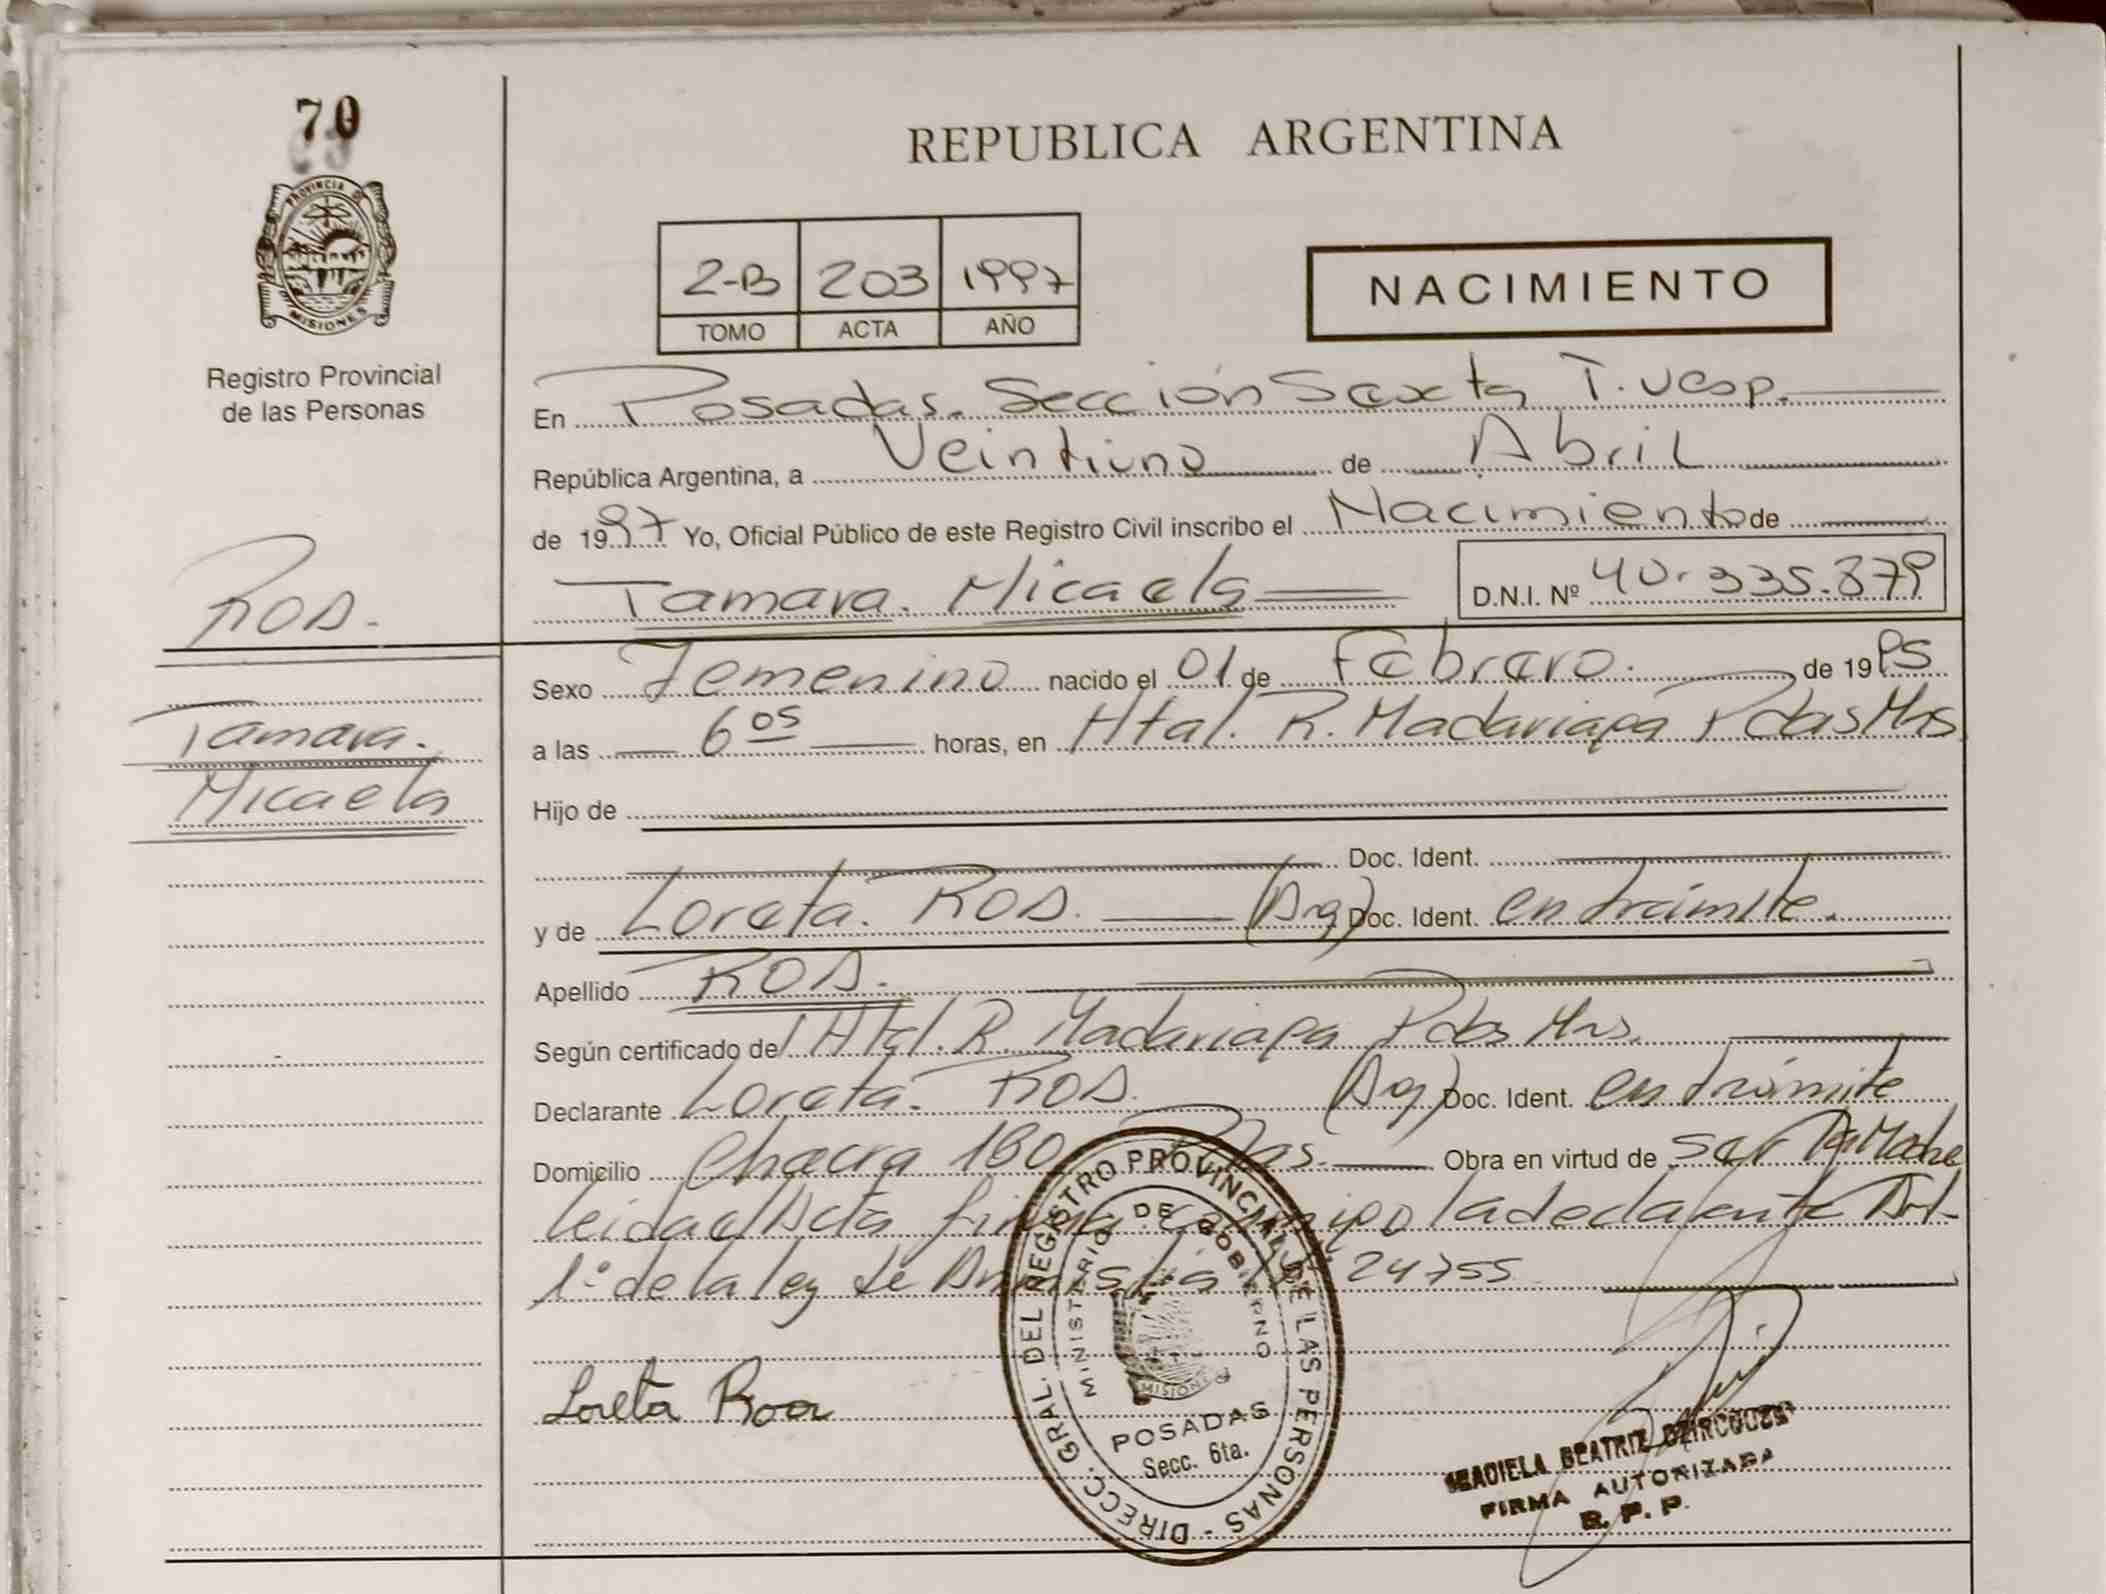 70
PROVINCIA DE
MISIONES
Registro Provincial
de las Personas
REPUBLICA ARGENTINA
2-B 203 1997
TOMO ACTA AÑO
NACIMIENTO
En Posadas. Sección Sexta T. Vesp.
República Argentina, a Veintiuno de Abril
de 1997 Yo, Oficial Público de este Registro Civil inscribo el Nacimiento de
Tamara. Micaela
D.N.I. Nº 40.335.879
ROA.
Tamara.
Micaela
Sexo Femenino nacido el 01 de Febrero. de 1995
a las 6 os horas, en Htal. R. Madariaga Pdas Mns
Hijo de
Doc. Ident.
y de Loreta. ROA. (Arg) Doc. Ident. en trámite.
Apellido ROA.
Según certificado del Htal. R. Madariaga Pdas Mns.
Declarante Loreta. ROA. (Arg) Doc. Ident. en trámite
Domicilio Chacra 180 Pdas. Obra en virtud de ser la Madre
leida el Acta firma conmigo la declarante Art.
1º de la ley de Amnistia 24755
Loreta Roa
DIRECC. GRAL. DEL REGISTRO PROVINCIAL DE LAS PERSONAS -
MINISTERIO DE GOBIERNO
MISIONES
POSADAS
Secc. 6ta.
BEATRIZ
FIRMA AUTORIZADA
R. P. P.